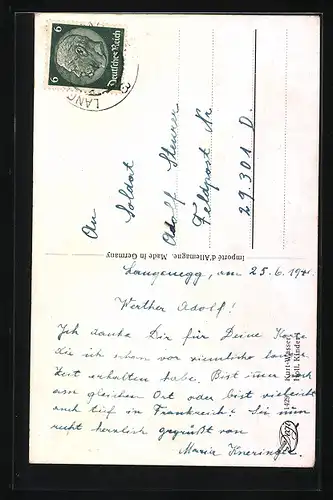 6
6
Deutsches Reich
LANG
An
Soldat
Adolf
Feldpost Nr
29.301 D.
Importé d'Allemagne. Made in Germany
Langenegg, am 25.6.194
Werther Adolf!
Ich danke Dir für Deine Karte
die ich schon vor ziemlich langer
Zeit erhalten habe. Bist immer noch
am gleichen Ort oder bist vielleicht
auch tief in Frankreich? Sei nun
recht herzlich gegrüßt von
Maria
Holl. Kinder